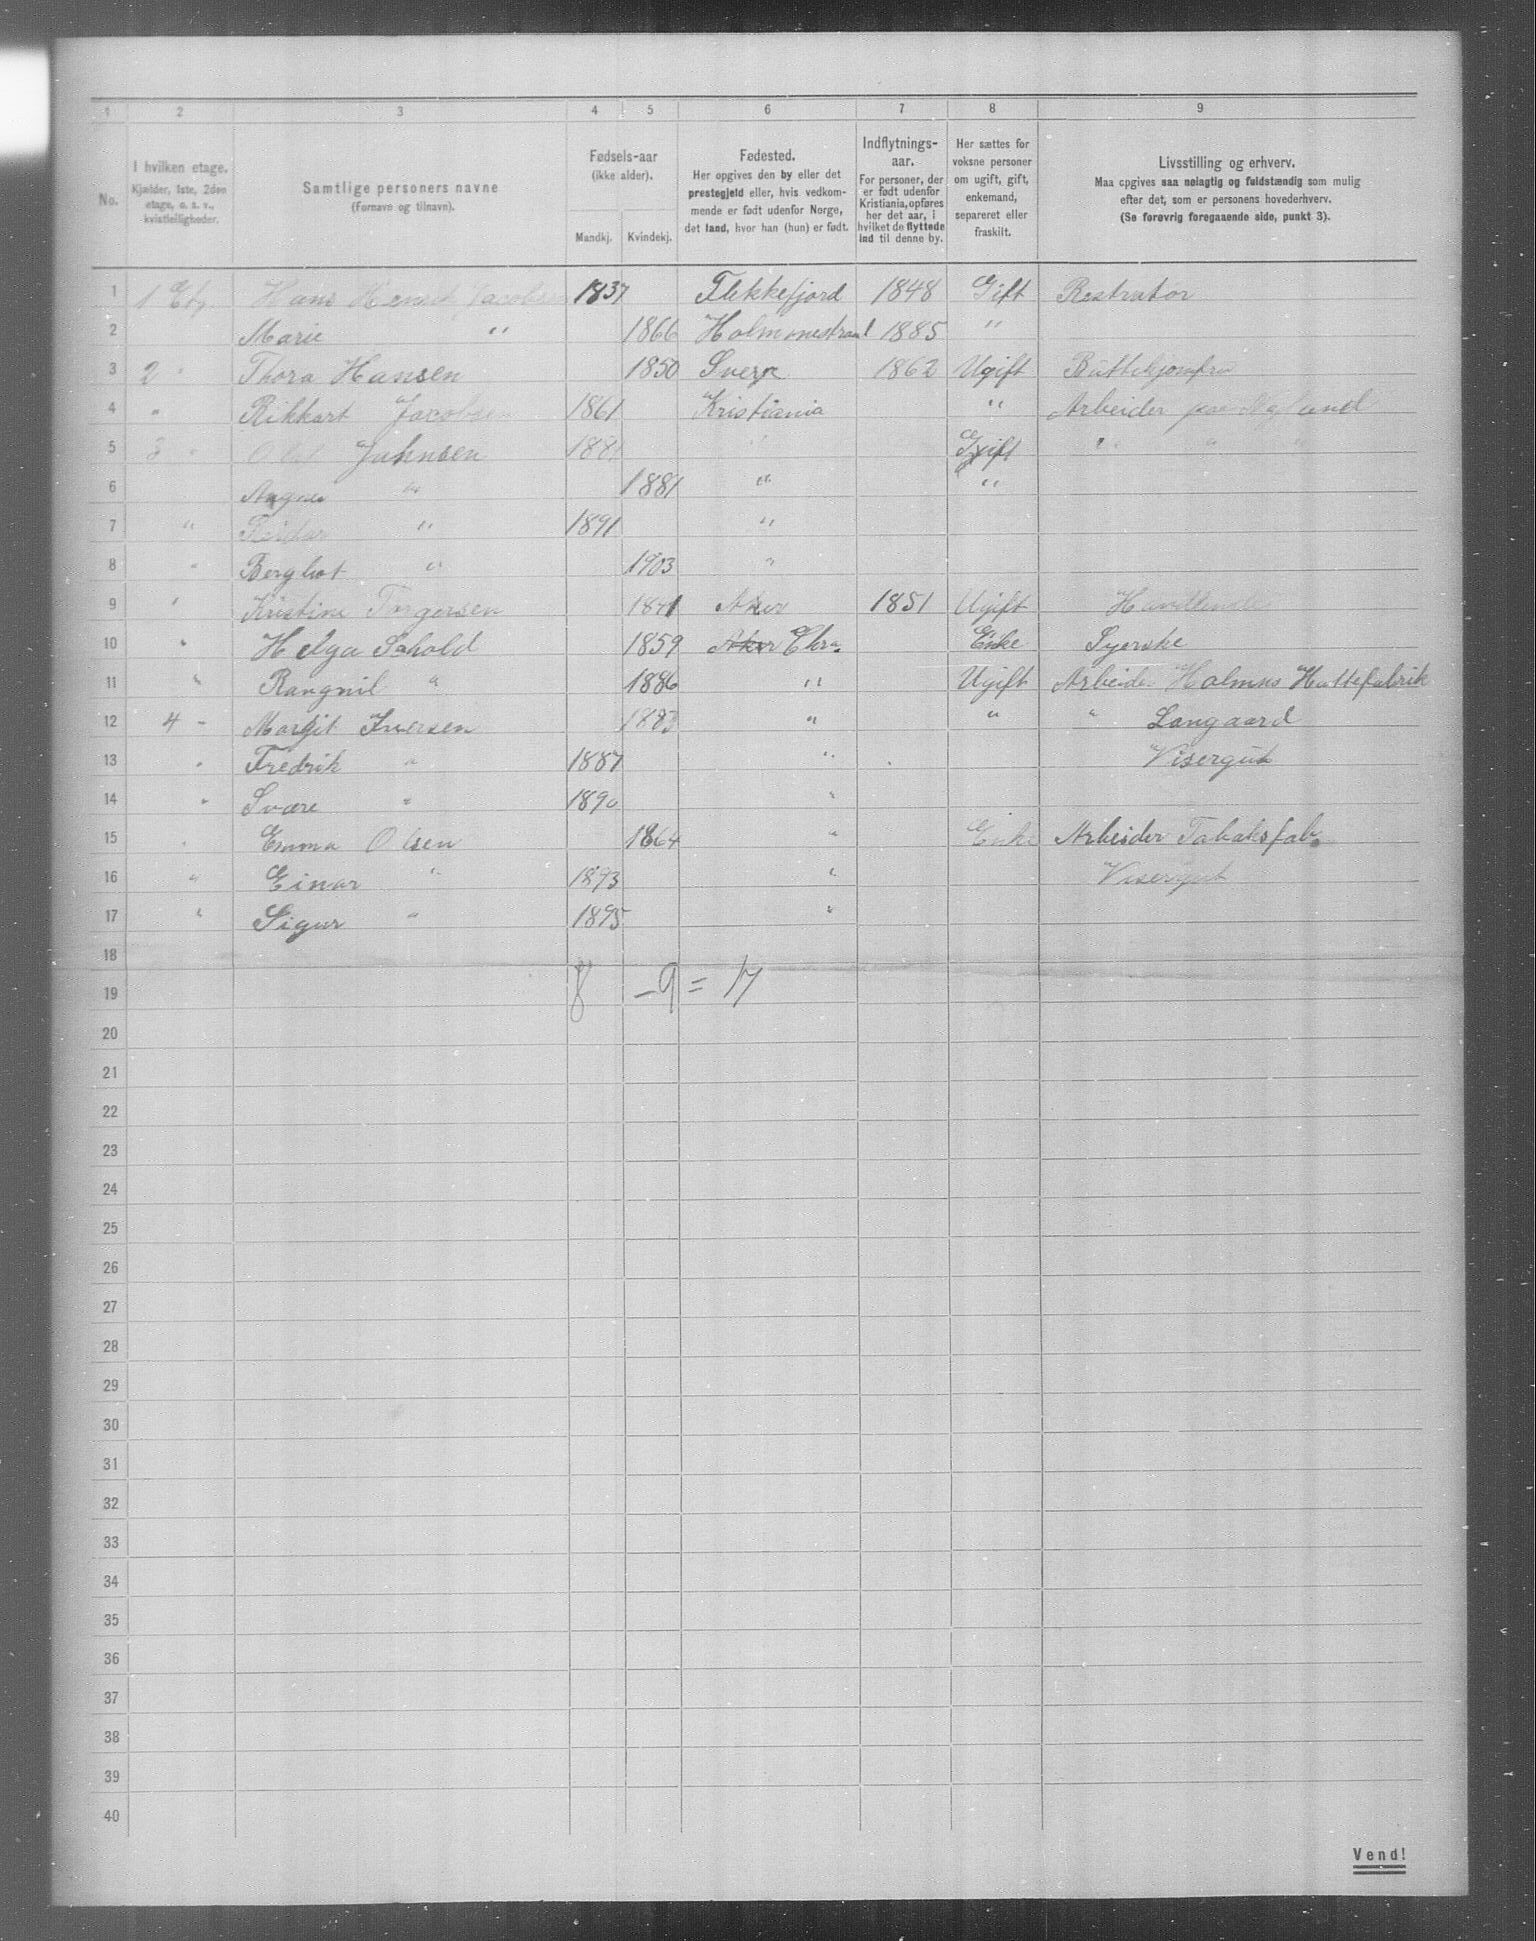 1 2 3 4 5 6 7 8 9
No.
I hvilken etage.
Kjælder, 1ste, 2den
etage, o. s. v.,
kvistleiligheder.
Samtlige personers navne
(Fornavn og tilnavn).
Fødsels-aar
(ikke alder).
Mandkj. Kvindekj.
Fødested.
Her opgives den by eller det
prestegjeld eller, hvis vedkom-
mende er født udenfor Norge,
det land, hvor han (hun) er født.
Indflytnings-
aar.
For personer, der
er født udenfor
Kristiania, opføres
her det aar, i
hvilket de flyttede
ind til denne by.
Her sættes for
voksne personer
om ugift, gift,
enkemand,
separeret eller
fraskilt.
Livsstilling og erhverv.
Maa opgives saa nøiagtig og fuldstændig som mulig
efter det, som er personens hovederhverv.
(Se forøvrig foregaaende side, punkt 3).
1 1 Etg. Hans Henrik Jacobsen 1837 Flekkefjord 1848 Gift Restratør
2 Marie " 1866 Holmmestrand 1885 "
3 2 " Thora Hansen 1850 1862 Ugift
4 " Rikkart Jacobsen 1861 Kristiania " Arbeider
5 3 " Johnsen 1881 " Gift " " "
6 Agnes " 1881 " "
7 " Reidar " 1891 "
8 " Berghot " 1903 "
9 " Kristine Torgersen 1841 Aker 1851 Ugift
10 " Helga Schold 1859 Aker Chra. Enke Syerske
11 " Rangnil " 1886 " Ugift Arbeider Holmns Hattefabrik
12 4 " Margit Iversen 1883 " " " Langaard
13 " Fredrik " 1887 " Visergut
14 " Svære " 1890 "
15 " Emma Olsen 1864 " Enke Arbeider Tabaksfab.
16 " Einar " 1893 " Visergut
17 " Sigur " 1895 "
18
8 – 9 = 17
19
20
21
22
23
24
25
26
27
28
29
30
31
32
33
34
35
36
37
38
39
40
Vend!